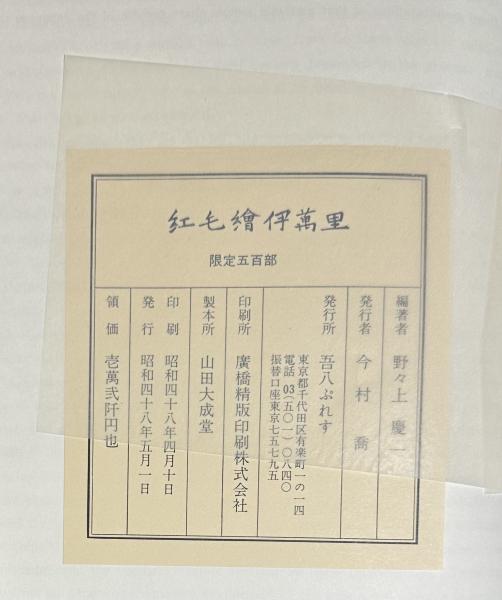 紅毛繪伊萬里
限定五百部
編著者　野々上　慶一
発行者　今　村　　喬
発行所　吾八ぷれす
東京都千代田区有楽町一の一四
電話 03(五〇一)〇八四〇
振替口座東京七五七九五
印刷所　廣橋精版印刷株式会社
製本所　山田大成堂
印　刷　昭和四十八年四月十日
発　行　昭和四十八年五月一日
領　価　壱萬弐阡円也